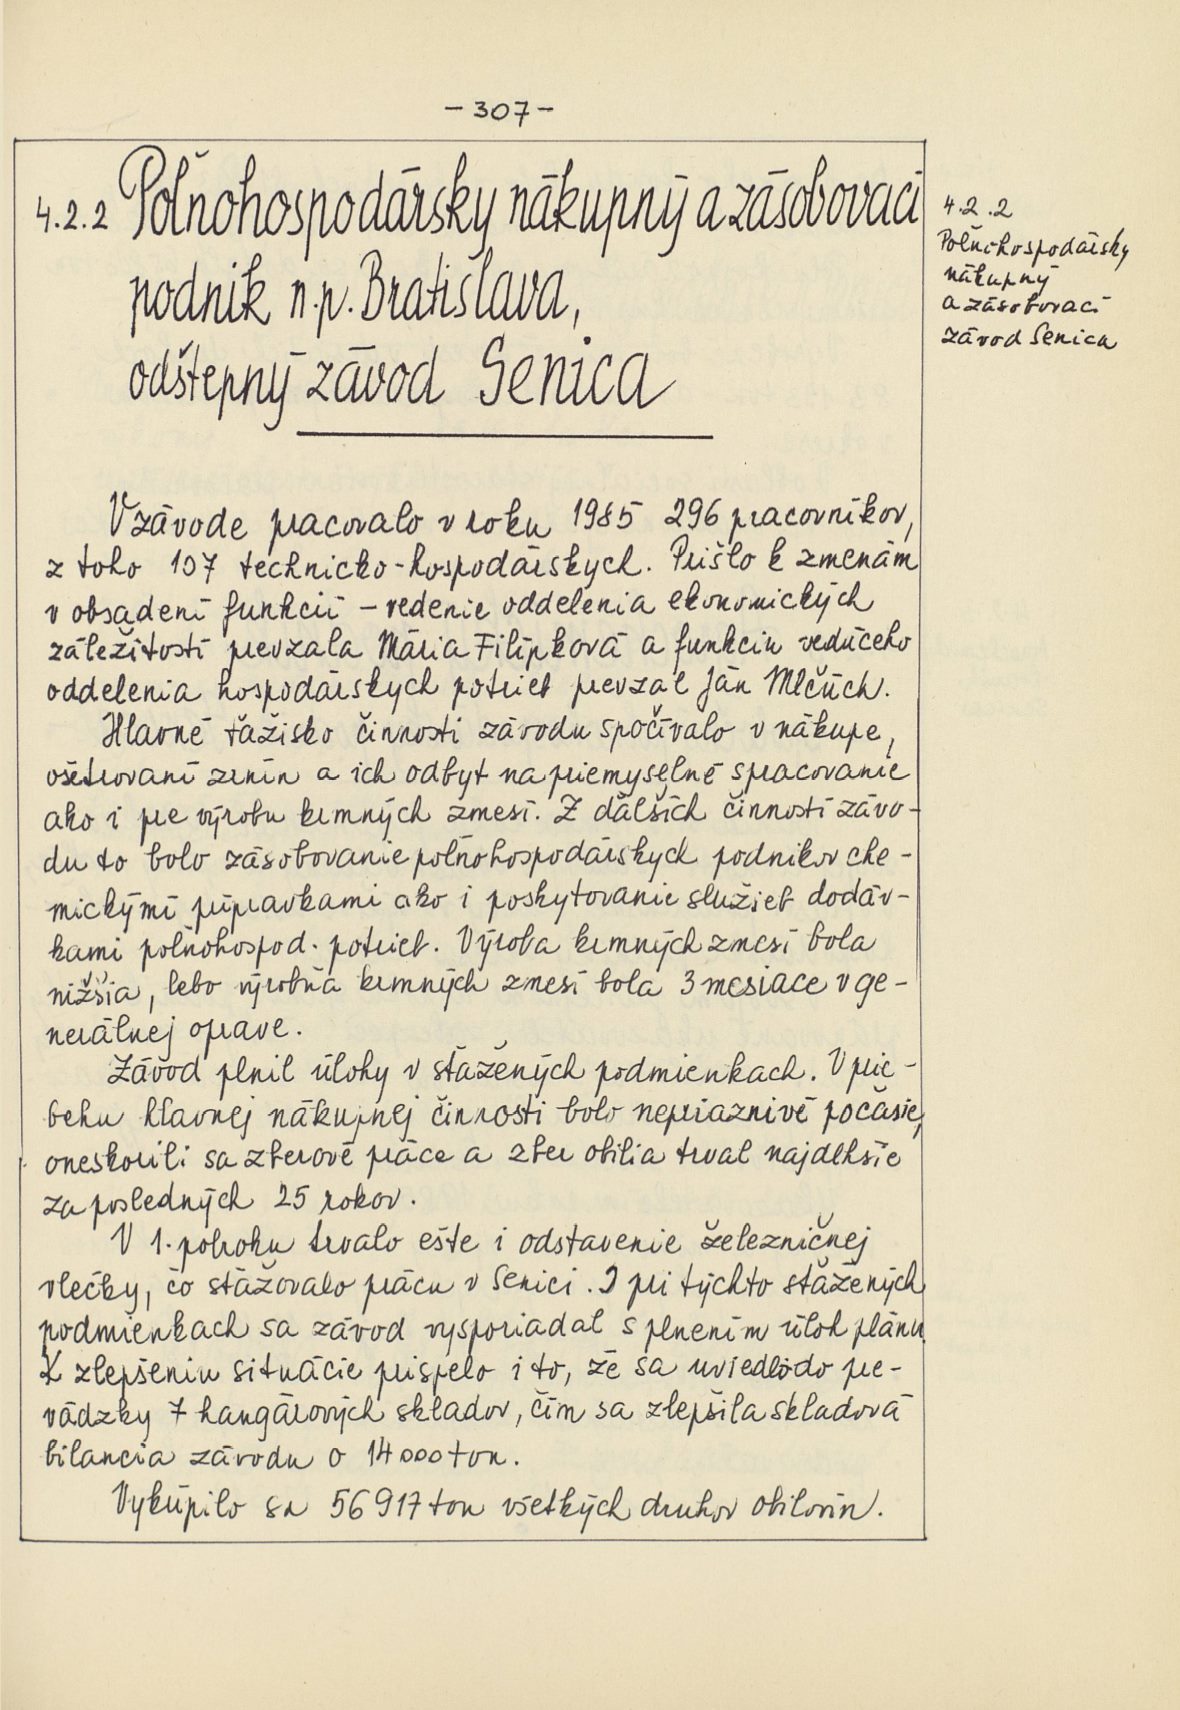 - 307 -
4.2.2 Poľnohospodársky nákupný a zásobovací
podnik n.p. Bratislava,
odštepný závod Senica
4.2.2
Poľnohospodársky
nákupný
a zásobovací
závod Senica
V závode pracovalo v roku 1985 296 pracovníkov,
z toho 107 technicko-hospodárskych. Prišlo k zmenám
v obsadení funkcií - vedenie oddelenia ekonomických
záležitostí prevzala Mária Filípková a funkciu vedúceho
oddelenia hospodárskych potrieb prevzal Ján Mlčúch.
Hlavné ťažisko činnosti závodu spočívalo v nákupe,
ošetrovaní zrnín a ich odbyt na priemyselné spracovanie
ako i pre výrobu kŕmných zmesí. Z ďalších činností závo-
du to bolo zásobovanie poľnohospodárskych podnikov che-
mickými prípravkami ako i poskytovanie služieb dodáv-
kami poľnohospod. potrieb. Výroba kŕmných zmesí bola
nižšia, lebo výrobňa kŕmnych zmesí bola 3 mesiace v ge-
nerálnej oprave.
Závod plnil úlohy v sťažených podmienkach. V prie-
behu hlavnej nákupnej činnosti bolo nepriaznivé počasie,
oneskorili sa zberové práce a zber obilia trval najdlhšie
za posledných 25 rokov.
V 1. polroku trvalo ešte i odstavenie železničnej
vlečky, čo sťažovalo prácu v Senici. I pri týchto sťažených
podmienkach sa závod vysporiadal s plnením úloh plánu.
K zlepšeniu situácie prispelo i to, že sa uviedlo do pre-
vádzky 7 hangárových skladov, čím sa zlepšila skladová
bilancia závodu o 14 000 ton.
Vykúpilo sa 56 917 ton všetkých druhov obilovín.